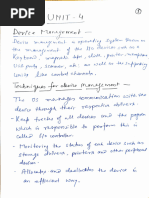 UNIT - 4
Device Management —
Device management in operating System known as
the management of the I/O devices such as a
Keyboard, magnetic tape, disk, printer, microphone
USB ports, scanner, etc. as well as the supporting
Units like control channels.
Techniques for device Management —
The OS manages communication with the
device through their respective drivers.
Keep tracks of all devices and the program
which is responsible to perform this is
called I/O controller.
Monitoring the status of each device such as
storage drivers, printers and other peripheral
devices.
Allocating and deallocating the device in
an efficient way.